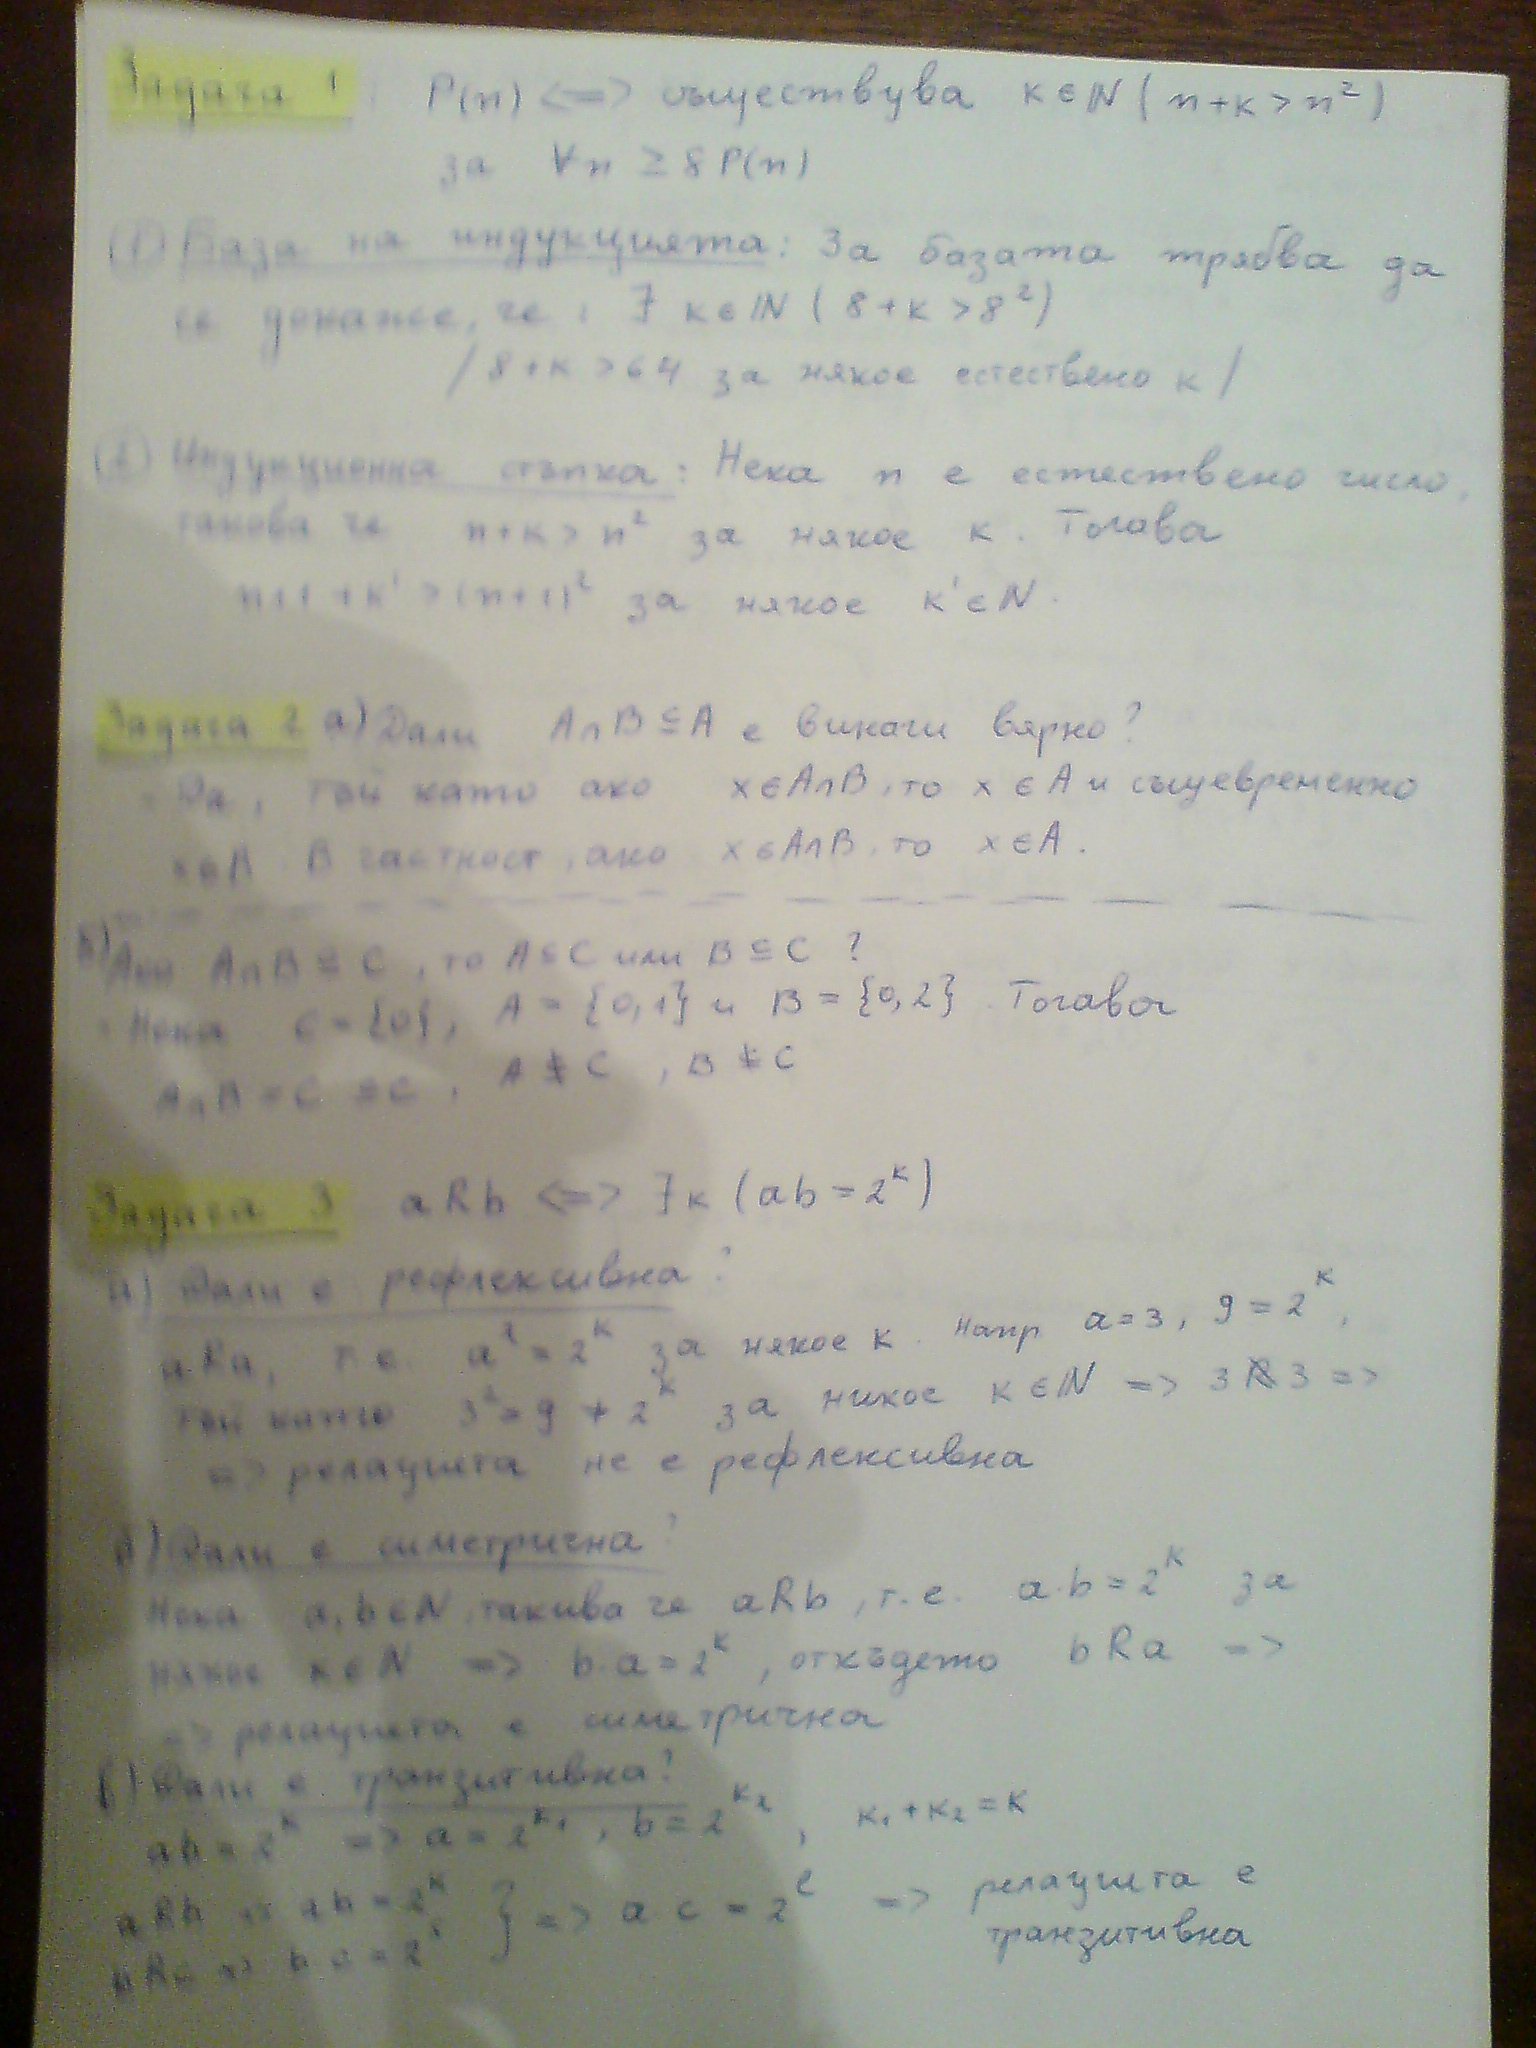 Задача 1: P(n) <=> съществува k ∈ ℕ ( n+k > n² )
за ∀n ≥ 8 P(n)
(1) База на индукцията: За базата трябва да
се докаже, че: ∃ k ∈ ℕ ( 8+k > 8² )
/ 8+k > 64 за някое естествено k /
(2) Индукционна стъпка: Нека n е естествено число,
такова че n+k > n² за някое k. Тогава
n+1+k' > (n+1)² за някое k' ∈ N.
Задача 2 а) Дали A∩B ⊆ A е винаги вярно?
Да, тъй като ако x ∈ A∩B, то x ∈ A и същевременно
В частност, ако x ∈ A∩B, то x ∈ A.
Ако A∩B ⊆ C, то A ⊆ C или B ⊆ C ?
Нека C = {0}, A = {0,1} и B = {0,2}. Тогава
A∩B = C ⊆ C, A ⊈ C, B ⊈ C
Задача 3 aRb <=> ∃k (ab = 2ᵏ)
а) Дали е рефлексивна?
aRa, т.е. a² = 2ᵏ за някое k. Напр a=3, 9 = 2ᵏ,
тъй като 3² = 9 ≠ 2ᵏ за никое k ∈ ℕ => 3 R̸ 3 =>
=> релацията не е рефлексивна
Дали е симетрична?
Нека a, b ∈ N, такива че aRb, т.е. a.b = 2ᵏ за
някое k ∈ N => b.a = 2ᵏ, откъдето bRa =>
=> релацията е симетрична
Дали е транзитивна?
ab = 2ᵏ => a = 2ᵏ¹, b = 2ᵏ², k₁+k₂ = k
aRb ab = 2ᵏ } => a.c = 2ˡ => релацията е
транзитивна